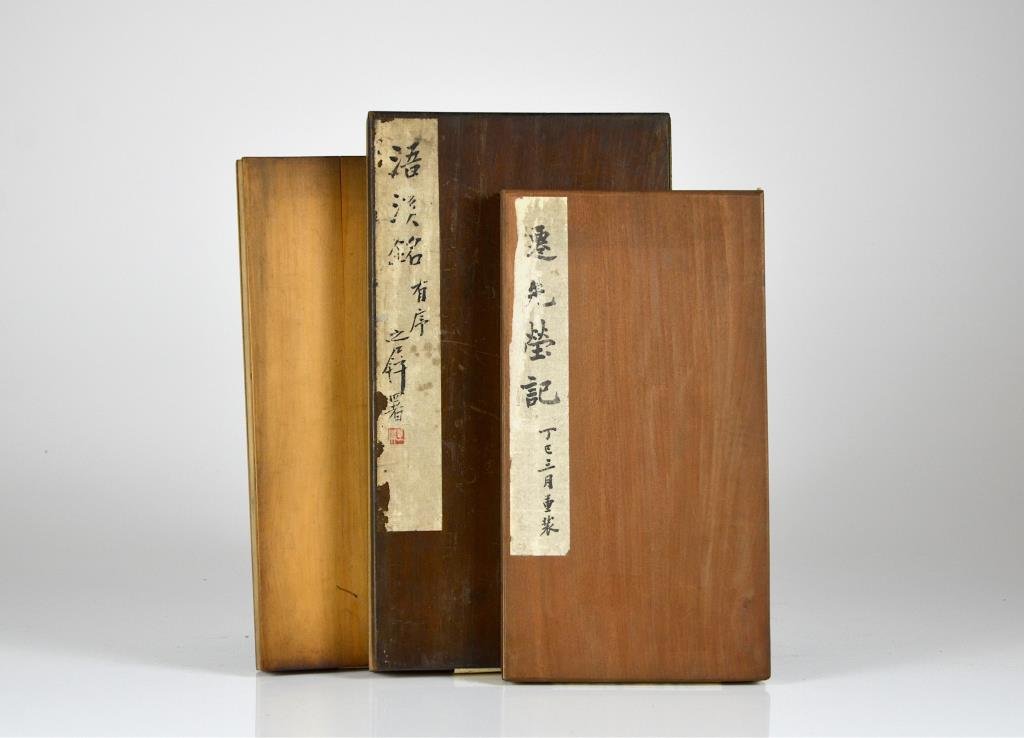 浯溪銘
有序
署
遷先塋記
丁巳三月重裝